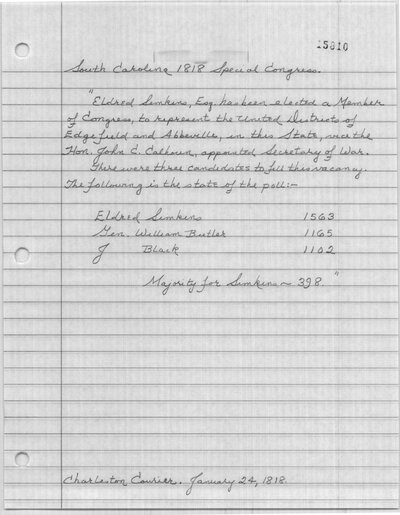 15810
South Carolina 1818 Special Congress.
"Eldred Simkins, Esq. has been elected a Member
of Congress, to represent the United Districts of
Edgefield and Abbeville, in this State, vice the
Hon. John C. Calhoun, appointed Secretary of War.
There were three candidates to fill this vacancy.
The following is the state of the poll:-
Eldred Simkins 1563
Gen. William Butler 1165
J Black 1102
Majority for Simkins ~ 398."
Charleston Courier. January 24, 1818.